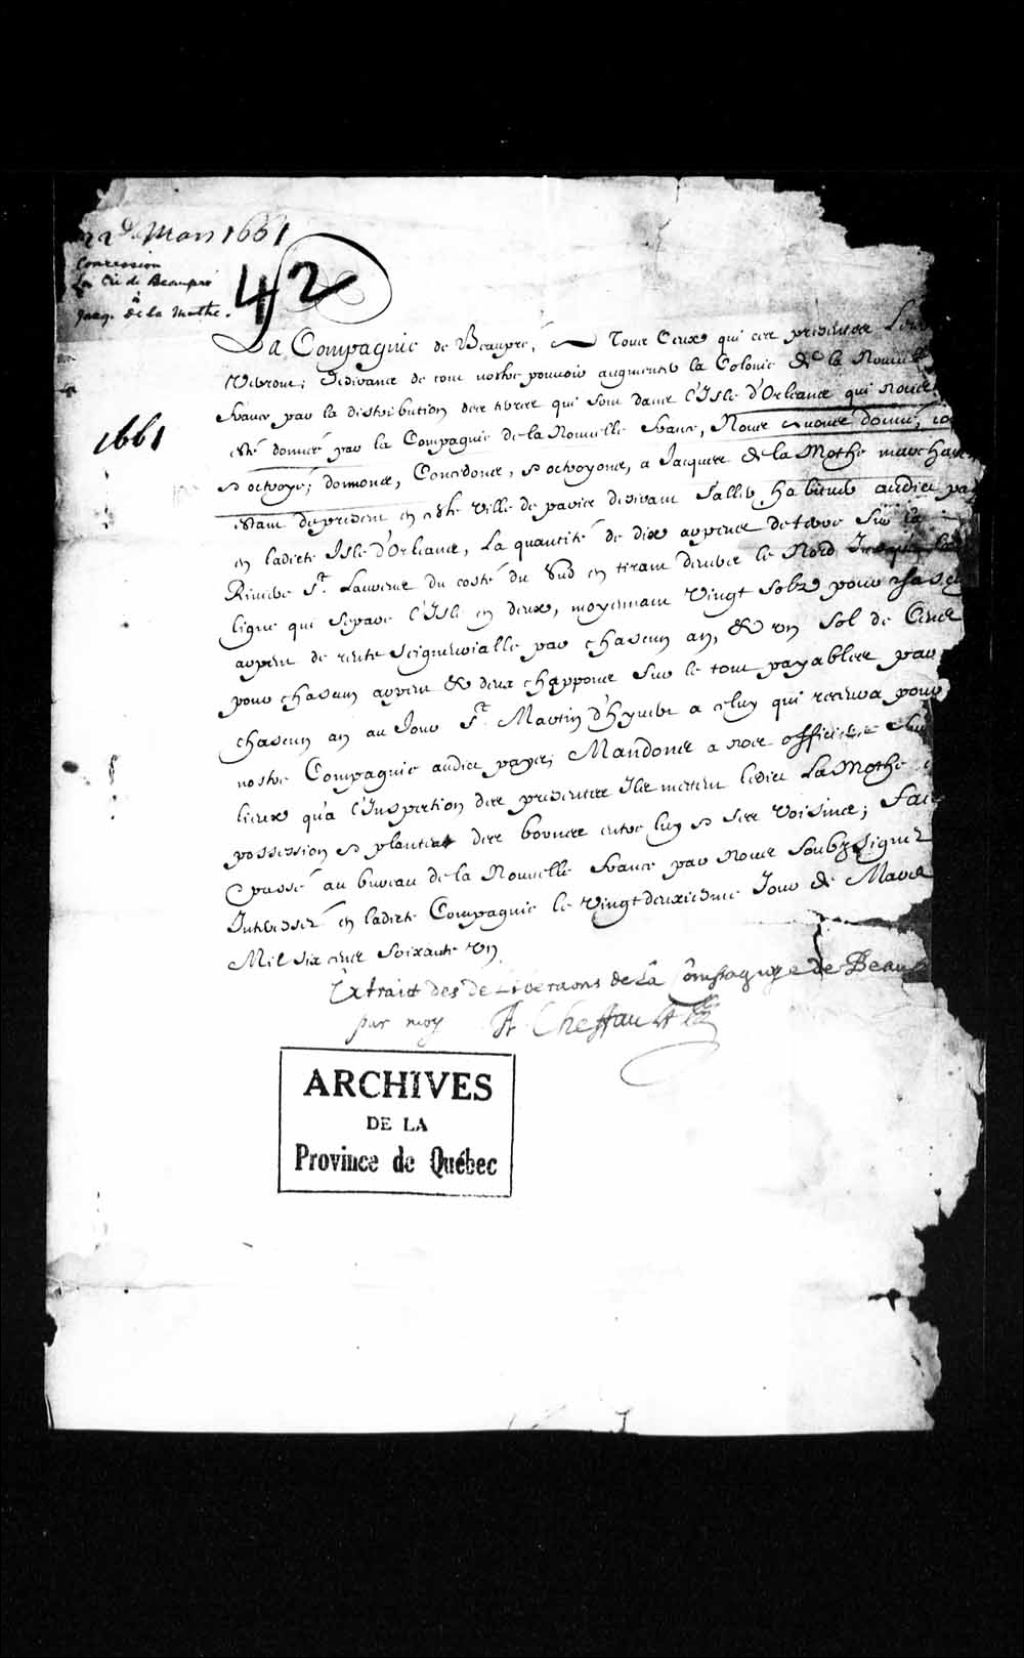 22e Mars 1661
Concession
La Cie de Beaupré
à
Jacq. de la Mothe.
42
1661
La Compagnie de Beaupré, A Tous Ceux qui ces presentes
Verront; Desirans de tout nostre pouvoir augmenter la Colonie de la Nouvelle
france par la distribution des terres qui sont dans l'Isle d'Orleans qui nous
esté donnée par la Compagnie de la Nouvelle france, Nous avons donné,
& octroyé; donnons, Concedons, & octroyons, a Jacques de la Mothe marchand
estant de present en cette ville de paris desirant s'aller habituer audict
en ladicte Isle d'Orleans, La quantité de dix arpens de terre sur la
Riviere St. Laurens du costé du Sud en tirant devers le Nord Jusqu'a la
ligne qui separe l'Isle en deux, moyennant Vingt solz pour chascun
arpent de rente seigneurialle par chascun an, & un sol de Cens
pour chascun arpent & deux chappons sur le tout payables par
chascun an au Jour St. Martin d'hyver a celuy qui recevra pour
nostre Compagnie audict payis; Mandons a nos officiers
lieux qu'a l'Inspection des presentes Ils mettent ledict La Mothe
possession & plantent des bornes entre luy & ses Voisins; Faict
& passé au bureau de la Nouvelle france par Nous Soubzsignez
Interessez en ladicte Compagnie le Vingt deuxiesme Jour de Mars
Mil six cens soixante un
Extraict des deliberaons de La Compagnye de Beau
par moy A. Cheffault
ARCHIVES
DE LA
Province de Québec